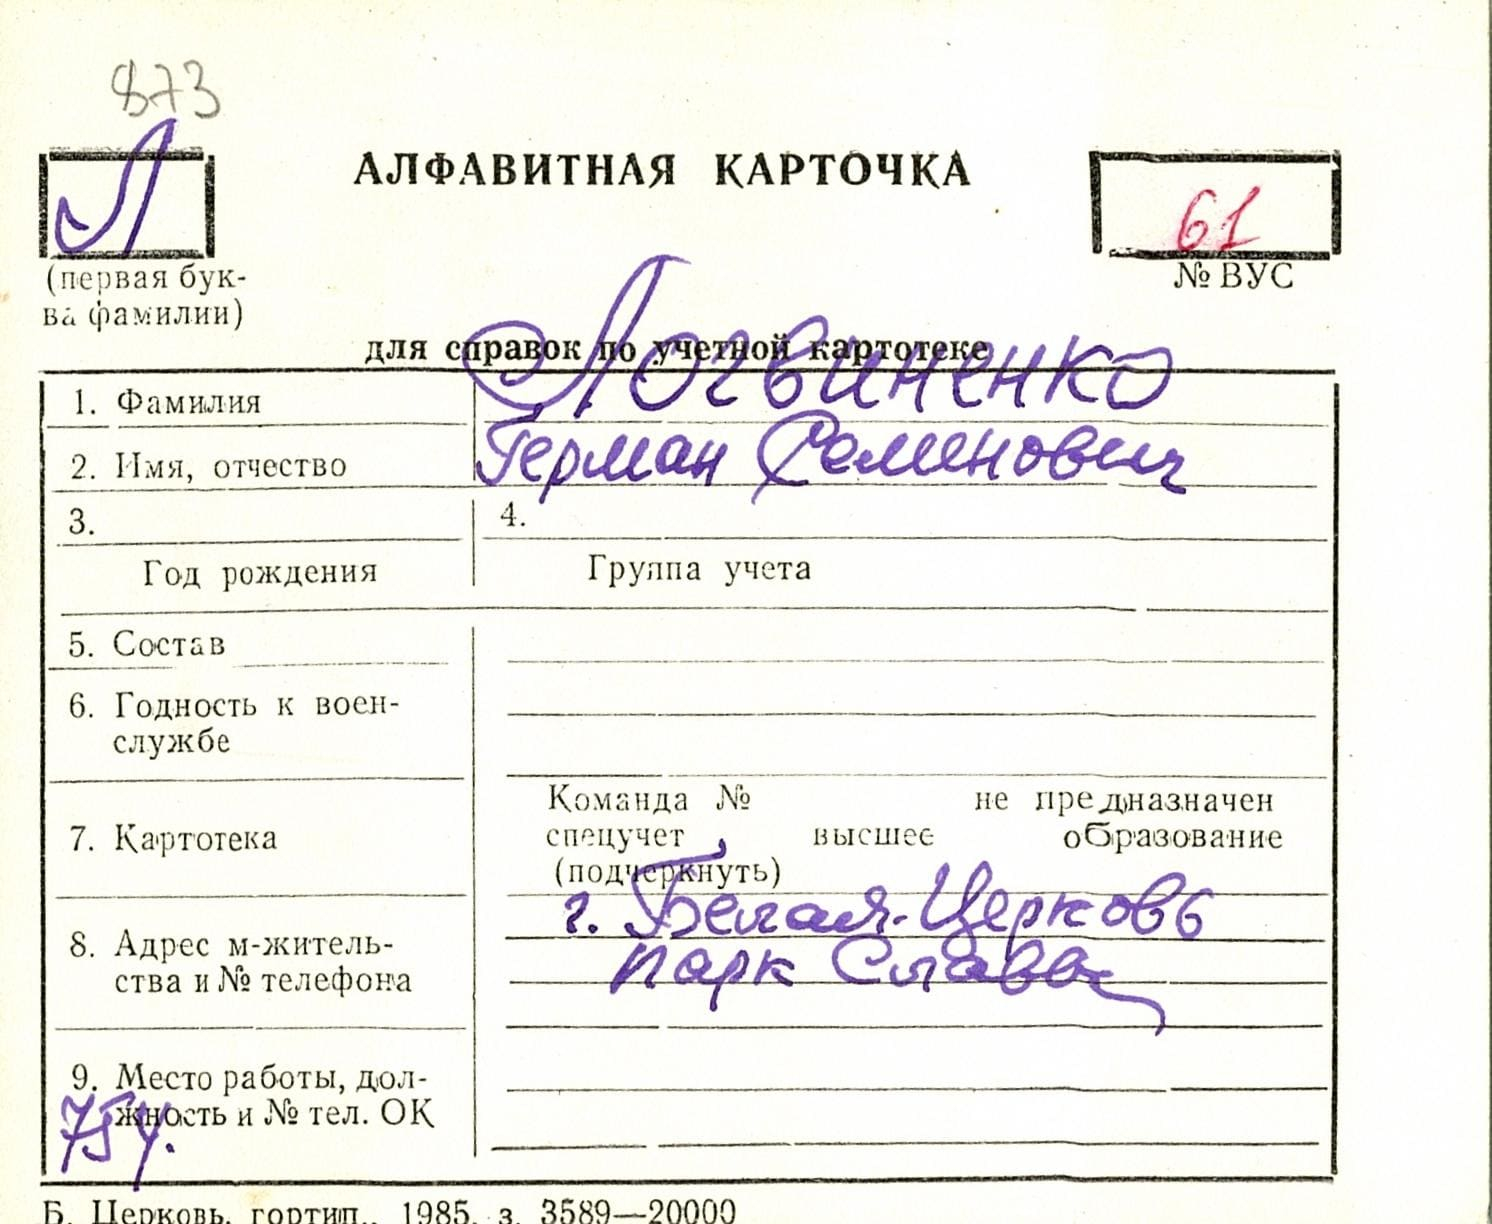 873
Л
АЛФАВИТНАЯ КАРТОЧКА
61
(первая бук-
ва фамилии)
№ ВУС
для справок по учетной картотеке
1. Фамилия Логвиненко
2. Имя, отчество Герман Семенович
3. 4.
Год рождения Группа учета
5. Состав
6. Годность к воен-
службе
7. Картотека
Команда № не предназначен
спецучет, высшее образование
(подчеркнуть)
8. Адрес м-житель-
ства и № телефона
г. Белая-Церковь
парк Слава
9. Место работы, дол-
жность и № тел. ОК
Б. Церковь, гортип., 1985, з. 3589—20000